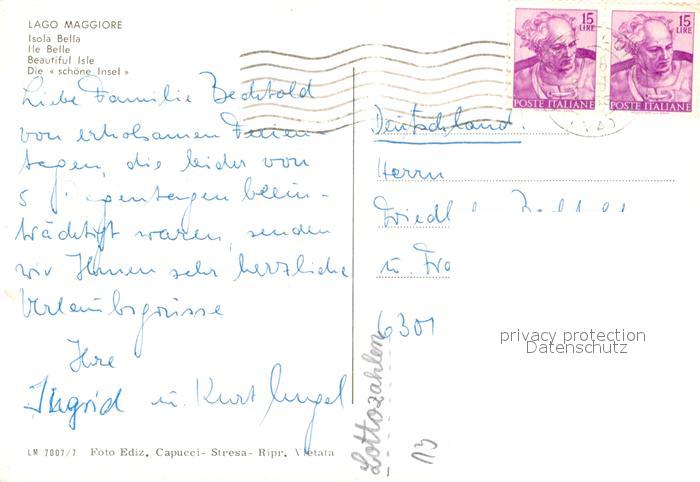 LAGO MAGGIORE
Isola Bella
Ile Belle
Beautiful Isle
Die « schöne Insel »
Liebe Familie Bechtold
von erholsamen Ferien-
tagen, die leider von
5 Regentagen beein-
trächtigt waren, senden
wir Ihnen sehr herzliche
Urlaubsgrüsse
Ihre
Ingrid u. Kurt
LM 7007/7 Foto Ediz. Capucci - Stresa - Ripr. Vietata
15 LIRE
POSTE ITALIANE
15 LIRE
POSTE ITALIANE
Deutschland.
Herrn
u. Fra
6301
privacy protection
Datenschutz
Lottozahlen
13